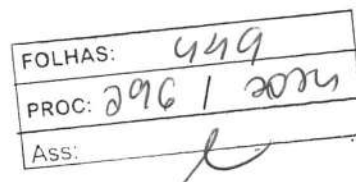 FOLHAS: 449
PROC: 296 / 2024
Ass: